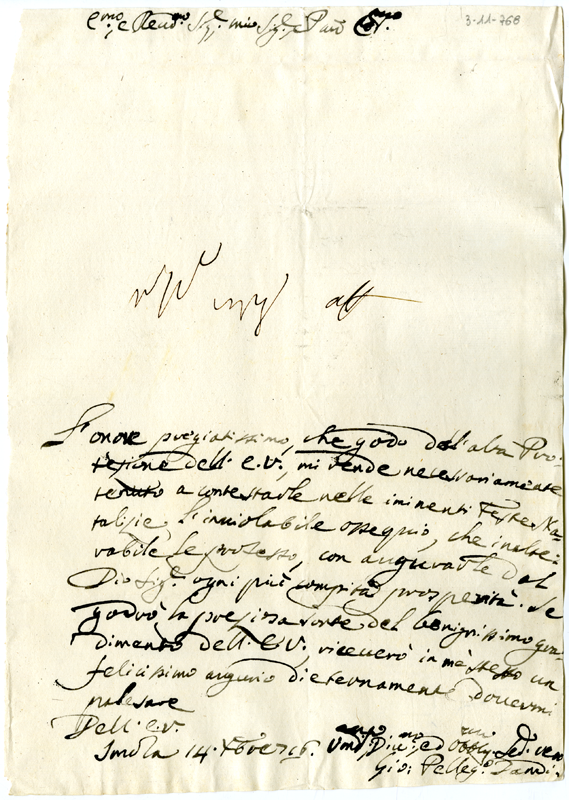 3-11-768
e Rev.mo Sig.r mio Sig.r e Pad
L'onore pregiatissimo, che godo dell'alta Pro-
tezione dell'E.V., mi rende necessariamente
tenuto a contestarle nelle iminenti Feste Na-
talizie l'inviolabile ossequio, che inalte-
rabile Le protesto, con augurarle dal
Dio Sig.r ogni più compita prosperità. Se
godrò la preziosa sorte del benignissimo gra-
dimento dell'E.V., riceverò in me stesso un
felicissimo augurio di eternamente dovermi
palesare
Dell'E.V.
Imola 14. Xbre
Um.mo Div.mo ed Obblig.mo
Gio: Pelleg.o